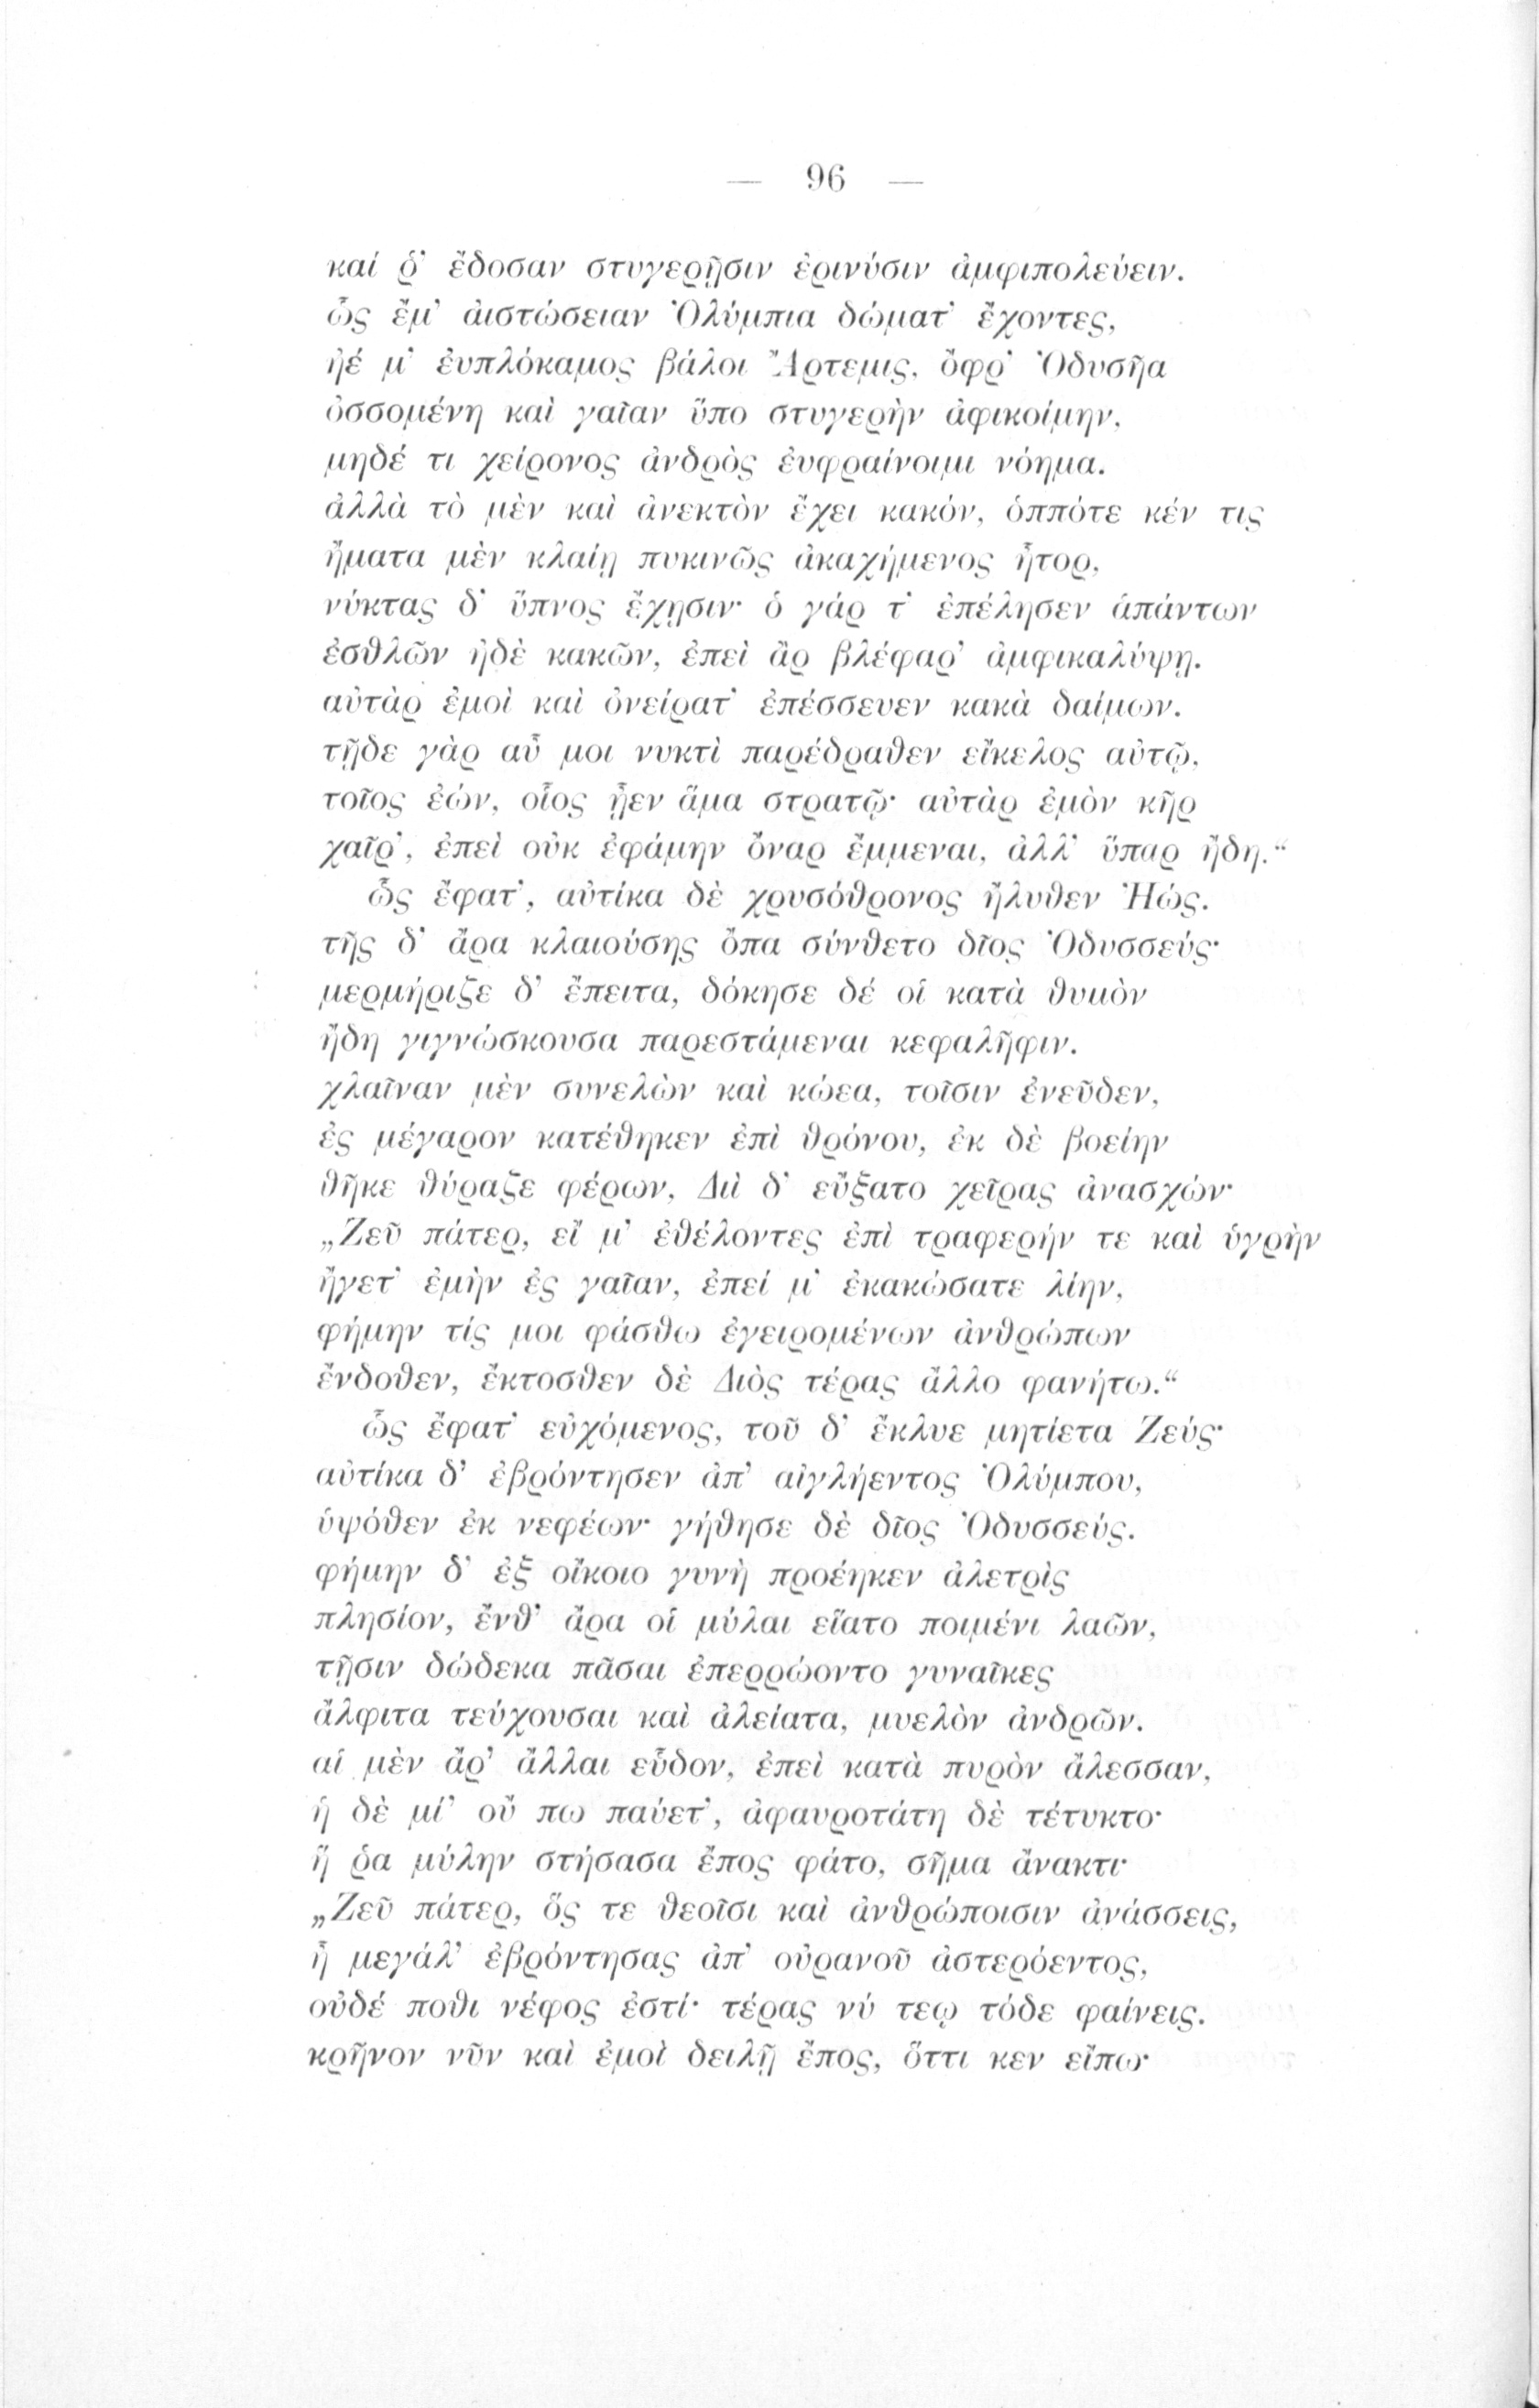 — 96 —
καί ῥ᾽ ἔδοσαν στυγερῇσιν ἐρινύσιν ἀμφιπολεύειν.
ὣς ἔμ᾽ ἀιστώσειαν Ὀλύμπια δώματ᾽ ἔχοντες,
ἠέ μ᾽ ἐυπλόκαμος βάλοι Ἄρτεμις, ὄφρ᾽ Ὀδυσῆα
ὀσσομένη καὶ γαῖαν ὕπο στυγερὴν ἀφικοίμην,
μηδέ τι χείρονος ἀνδρὸς ἐυφραίνοιμι νόημα.
ἀλλὰ τὸ μὲν καὶ ἀνεκτὸν ἔχει κακόν, ὁππότε κέν τις
ἤματα μὲν κλαίῃ πυκινῶς ἀκαχήμενος ἦτορ,
νύκτας δ᾽ ὕπνος ἔχῃσιν· ὁ γάρ τ᾽ ἐπέλησεν ἁπάντων
ἐσθλῶν ἠδὲ κακῶν, ἐπεὶ ἂρ βλέφαρ᾽ ἀμφικαλύψῃ.
αὐτὰρ ἐμοὶ καὶ ὀνείρατ᾽ ἐπέσσευεν κακὰ δαίμων.
τῇδε γὰρ αὖ μοι νυκτὶ παρέδραθεν εἴκελος αὐτῷ,
τοῖος ἐών, οἷος ᾖεν ἅμα στρατῷ· αὐτὰρ ἐμὸν κῆρ
χαῖρ᾽, ἐπεὶ οὐκ ἐφάμην ὄναρ ἔμμεναι, ἀλλ᾽ ὕπαρ ἤδη.“
ὣς ἔφατ᾽, αὐτίκα δὲ χρυσόθρονος ἤλυθεν Ἠώς.
τῆς δ᾽ ἄρα κλαιούσης ὄπα σύνθετο δῖος Ὀδυσσεύς·
μερμήριζε δ᾽ ἔπειτα, δόκησε δέ οἱ κατὰ θυμὸν
ἤδη γιγνώσκουσα παρεστάμεναι κεφαλῆφιν.
χλαῖναν μὲν συνελὼν καὶ κώεα, τοῖσιν ἐνεῦδεν,
ἐς μέγαρον κατέθηκεν ἐπὶ θρόνου, ἐκ δὲ βοείην
θῆκε θύραζε φέρων, Διὶ δ᾽ εὔξατο χεῖρας ἀνασχών·
„Ζεῦ πάτερ, εἴ μ᾽ ἐθέλοντες ἐπὶ τραφερήν τε καὶ ὑγρὴν
ἤγετ᾽ ἐμὴν ἐς γαῖαν, ἐπεί μ᾽ ἐκακώσατε λίην,
φήμην τίς μοι φάσθω ἐγειρομένων ἀνθρώπων
ἔνδοθεν, ἔκτοσθεν δὲ Διὸς τέρας ἄλλο φανήτω.“
ὣς ἔφατ᾽ εὐχόμενος, τοῦ δ᾽ ἔκλυε μητίετα Ζεύς·
αὐτίκα δ᾽ ἐβρόντησεν ἀπ᾽ αἰγλήεντος Ὀλύμπου,
ὑψόθεν ἐκ νεφέων· γήθησε δὲ δῖος Ὀδυσσεύς.
φήμην δ᾽ ἐξ οἴκοιο γυνὴ προέηκεν ἀλετρὶς
πλησίον, ἔνθ᾽ ἄρα οἱ μύλαι εἵατο ποιμένι λαῶν,
τῇσιν δώδεκα πᾶσαι ἐπερρώοντο γυναῖκες
ἄλφιτα τεύχουσαι καὶ ἀλείατα, μυελὸν ἀνδρῶν.
αἱ μὲν ἄρ᾽ ἄλλαι εὗδον, ἐπεὶ κατὰ πυρὸν ἄλεσσαν,
ἡ δὲ μί᾽ οὔ πω παύετ᾽, ἀφαυροτάτη δὲ τέτυκτο·
ἥ ῥα μύλην στήσασα ἔπος φάτο, σῆμα ἄνακτι·
„Ζεῦ πάτερ, ὅς τε θεοῖσι καὶ ἀνθρώποισιν ἀνάσσεις,
ἦ μεγάλ᾽ ἐβρόντησας ἀπ᾽ οὐρανοῦ ἀστερόεντος,
οὐδέ ποθι νέφος ἐστί· τέρας νύ τεῳ τόδε φαίνεις.
κρῆνον νῦν καὶ ἐμοὶ δειλῇ ἔπος, ὅττι κεν εἴπω·